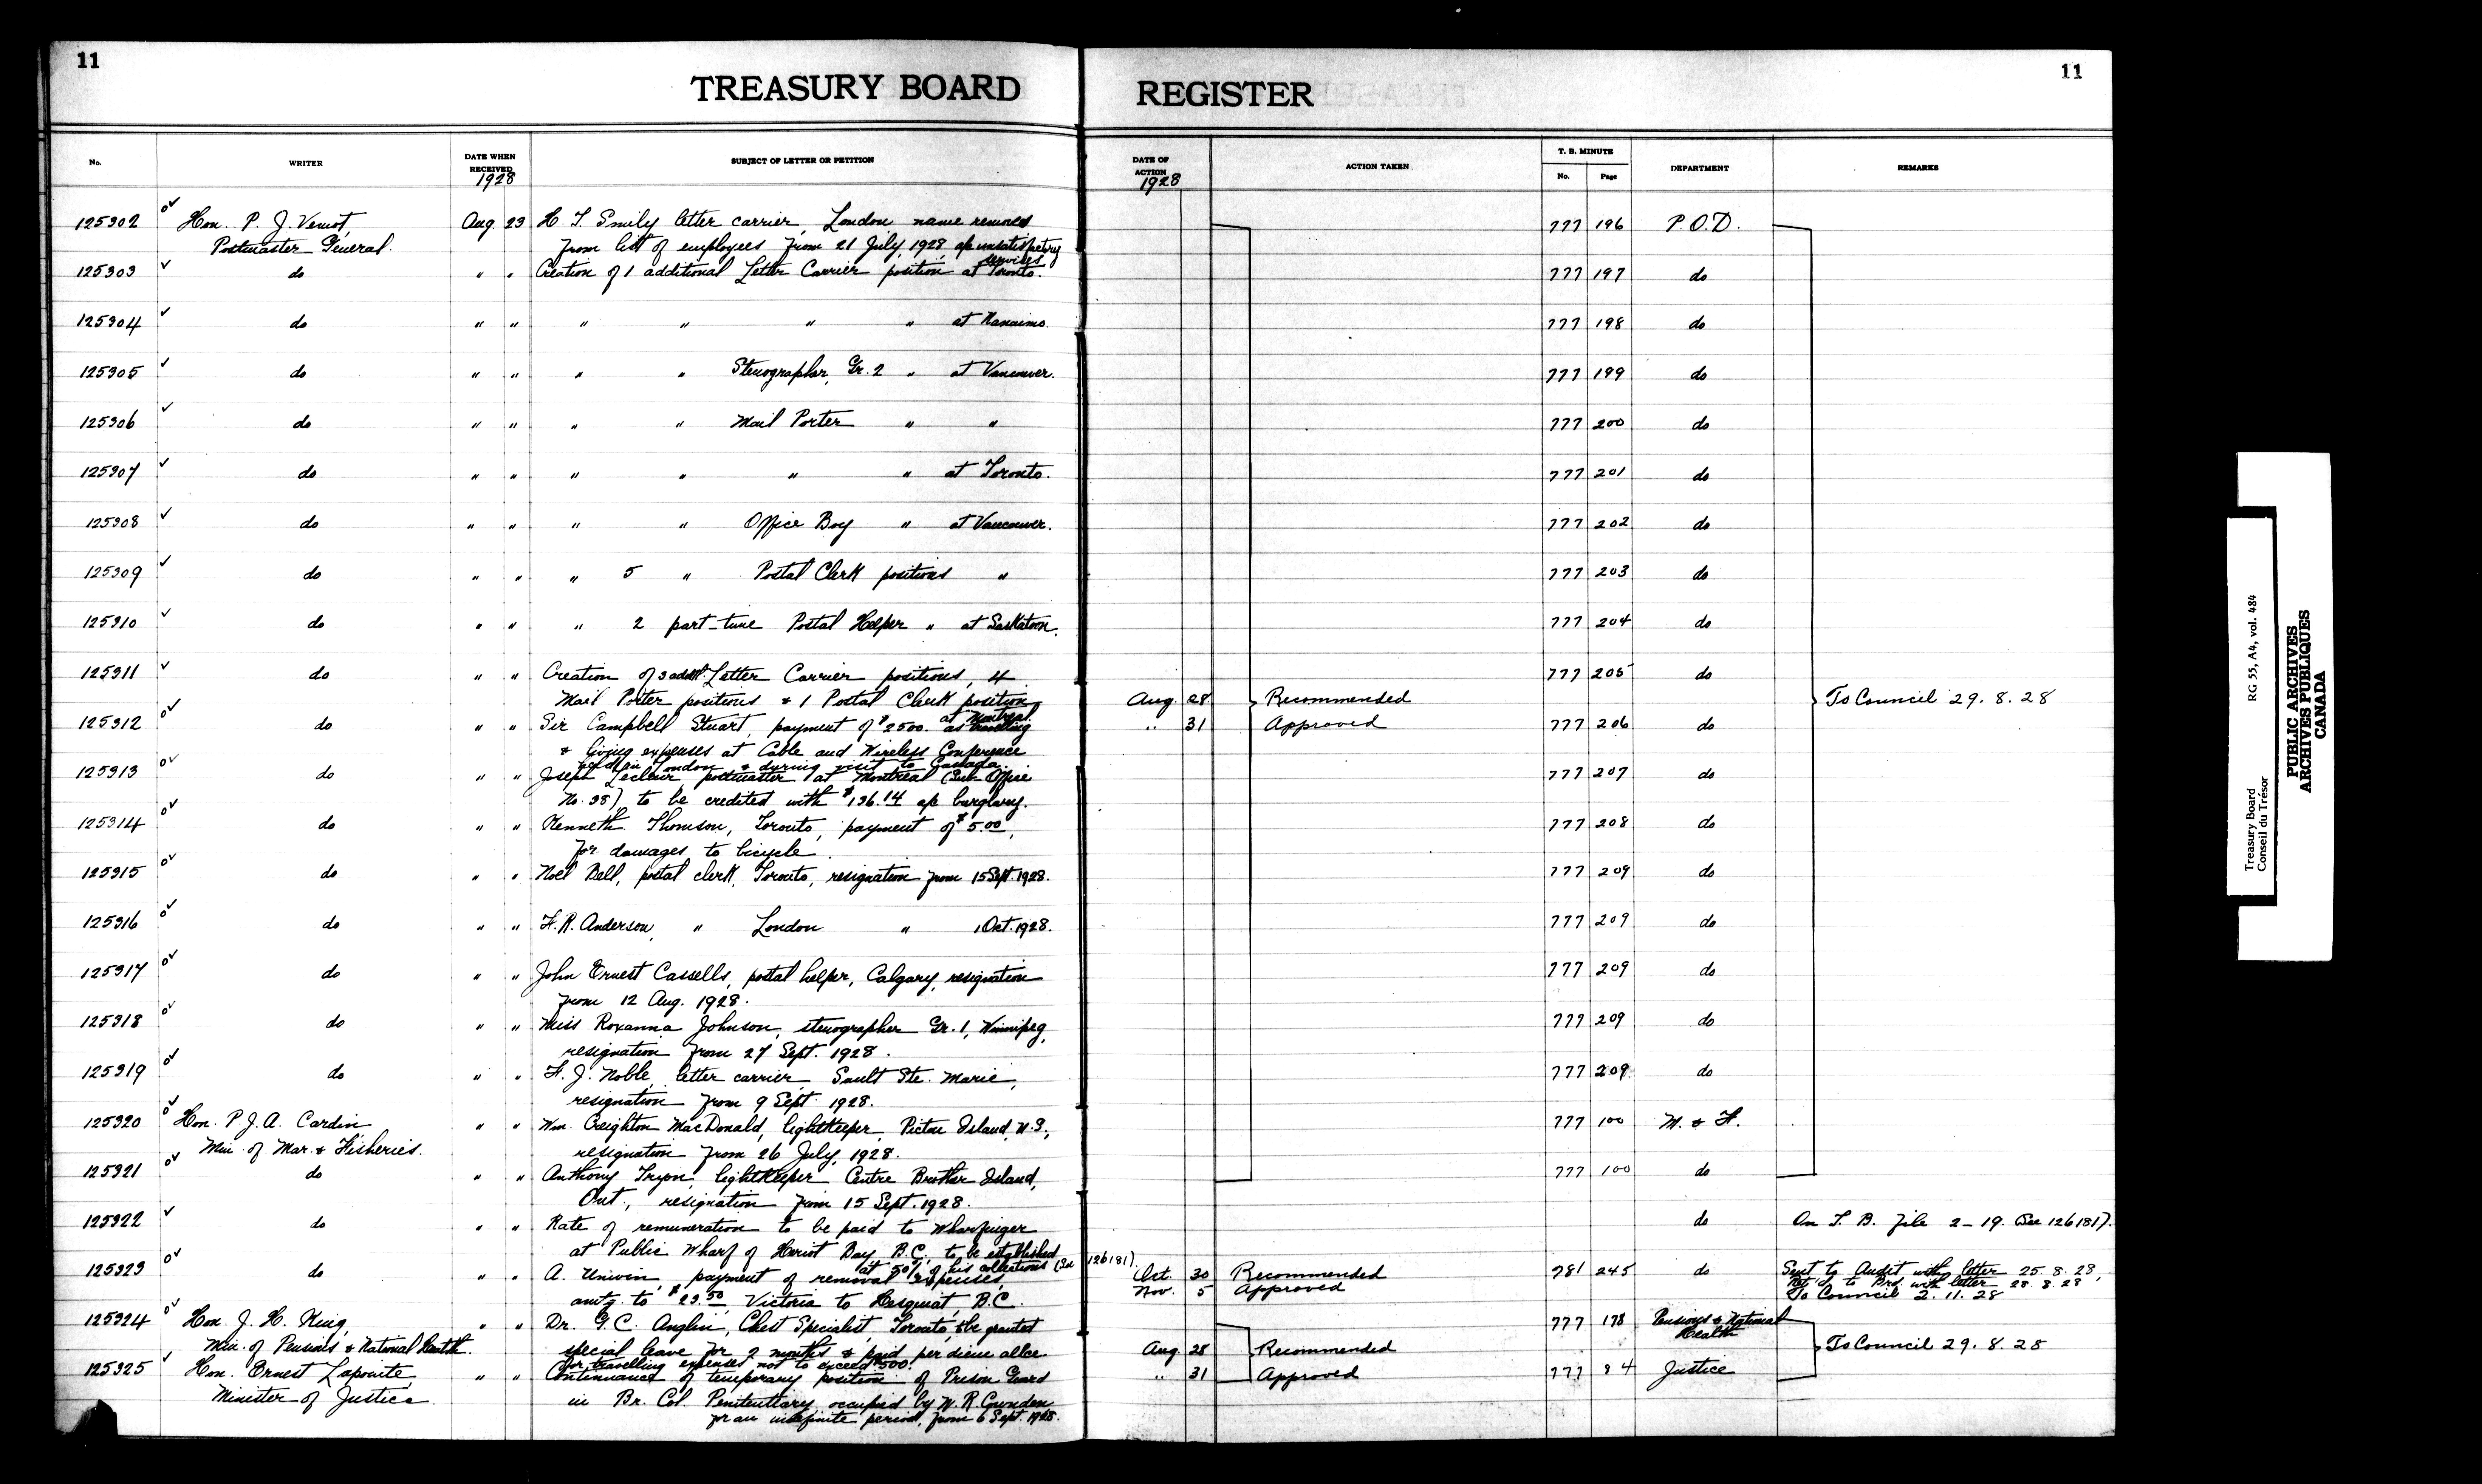 11
11
TREASURY BOARD REGISTER
No. WRITER DATE WHEN RECEIVED SUBJECT OF LETTER OR PETITION DATE OF ACTION ACTION TAKEN T. B. MINUTE No. Page DEPARTMENT REMARKS
1928 1928
125302 Hon. P. J. Veniot, Aug. 23 H. T. Smily letter carrier, London name removed 777 196 P.O.D.
Postmaster General. from list of employees from 21 July, 1928, a/c unsatisfactory services
125303 do " " Creation of 1 additional Letter Carrier position at Toronto. 777 197 do
125304 do " " " " " " at Nanaimo. 777 198 do
125305 do " " " " Stenographer, Gr. 2 " at Vancouver. 777 199 do
125306 do " " " " Mail Porter " " 777 200 do
125307 do " " " " " " at Toronto. 777 201 do
125308 do " " " " Office Boy " at Vancouver. 777 202 do
125309 do " " " 5 " Postal Clerk positions " 777 203 do
125310 do " " " 2 part-time Postal Helper " at Saskatoon. 777 204 do
125311 do " " Creation of 3 addtl. Letter Carrier positions, 4 777 205 do
Mail Porter positions & 1 Postal Clerk position at Montreal. Aug. 28 Recommended To Council 29. 8. 28
125312 do " " Sir Campbell Stuart, payment of $2500. as travelling " 31 Approved 777 206 do
& living expenses at Cable and Wireless Conference
held in London & during visit to Canada.
125313 do " " Joseph Leclair, postmaster at Montreal (Sub Office 777 207 do
No. 38) to be credited with $136.14 a/c burglary.
125314 do " " Kenneth Thomson, Toronto, payment of $5.00, 777 208 do
for damages to bicycle.
125315 do " " Noel Bell, postal clerk, Toronto, resignation from 15 Sept. 1928. 777 209 do
125316 do " " F. R. Anderson, " London " 1 Oct. 1928. 777 209 do
125317 do " " John Ernest Cassells, postal helper, Calgary, resignation 777 209 do
from 12 Aug. 1928.
125318 do " " Miss Roxanna Johnson, stenographer Gr. 1, Winnipeg, 777 209 do
resignation from 27 Sept. 1928.
125319 do " " F. J. Noble, letter carrier, Sault Ste. Marie, 777 209 do
resignation from 9 Sept. 1928.
125320 Hon. P. J. A. Cardin " " Wm. Creighton MacDonald, lightkeeper, Pictou Island, N.S., 777 100 M. & F.
Min. of Mar. & Fisheries. resignation from 26 July, 1928.
125321 do " " Anthony Tryon, lightkeeper Centre Brother Island, 777 100 do
Ont., resignation from 15 Sept. 1928.
125322 do " " Rate of remuneration to be paid to Wharfinger do On T. B. file 2-19. (See 126181).
at Public Wharf of Heriot Bay B.C. to be established
at 50% of his collections (See 126181).
125323 do " " A. Unwin, payment of removal expenses, Oct. 30 Recommended 781 245 do Sent to Audit with letter 25. 8. 28,
amtg. to $23.50, Victoria to Hesquiat, B.C. Nov. 5 Approved Ret'd to Brd. with letter 28. 8. 28
To Council 2. 11. 28
125324 Hon. J. H. King, " " Dr. G. C. Anglin, Chest Specialist, Toronto, to be granted 777 178 Pensions & National Health
Min. of Pensions & National Health. special leave for 2 months & paid per diem allce. Aug. 28 Recommended To Council 29. 8. 28
for travelling expenses not to exceed $500.
125325 Hon. Ernest Lapointe, " " Continuance of temporary position of Prison Guard " 31 Approved 777 84 Justice
Minister of Justice in Br. Col. Penitentiary occupied by W. R. Cownden
for an indefinite period, from 6 Sept. 1928.
Treasury Board RG 55, A4, vol. 484
Conseil du Trésor
PUBLIC ARCHIVES
ARCHIVES PUBLIQUES
CANADA